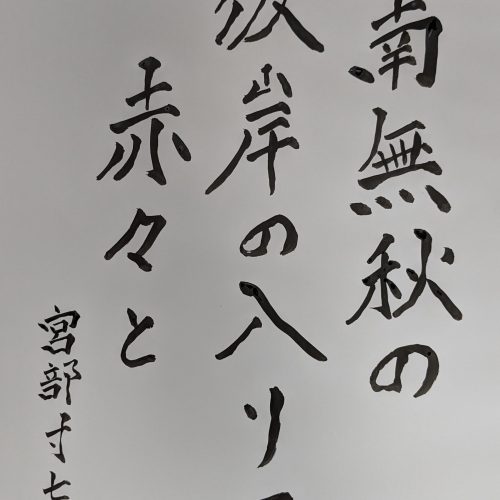 南無秋の
彼岸の入り
赤々と
宮部寸七